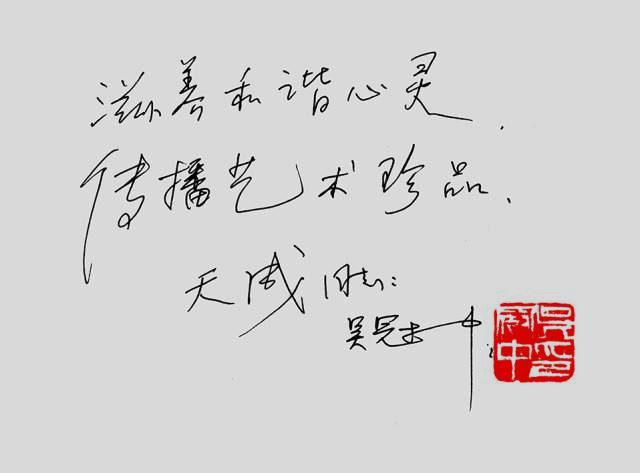 滋养和谐心灵.
传播艺术珍品.
天成同志:
吴冠中
吴冠中印